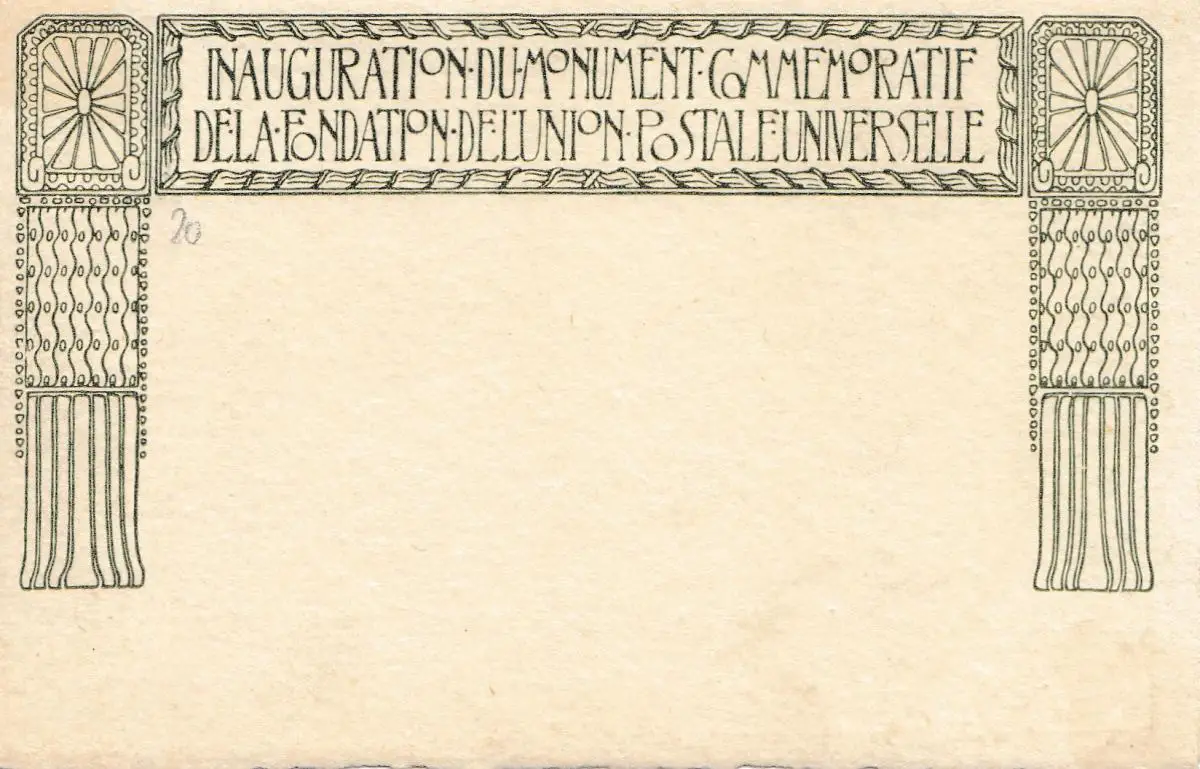 INAUGURATION·DU·MONUMENT·COMMEMORATIF
DE·LA·FONDATION·DE·L'UNION·POSTALE·UNIVERSELLE
20